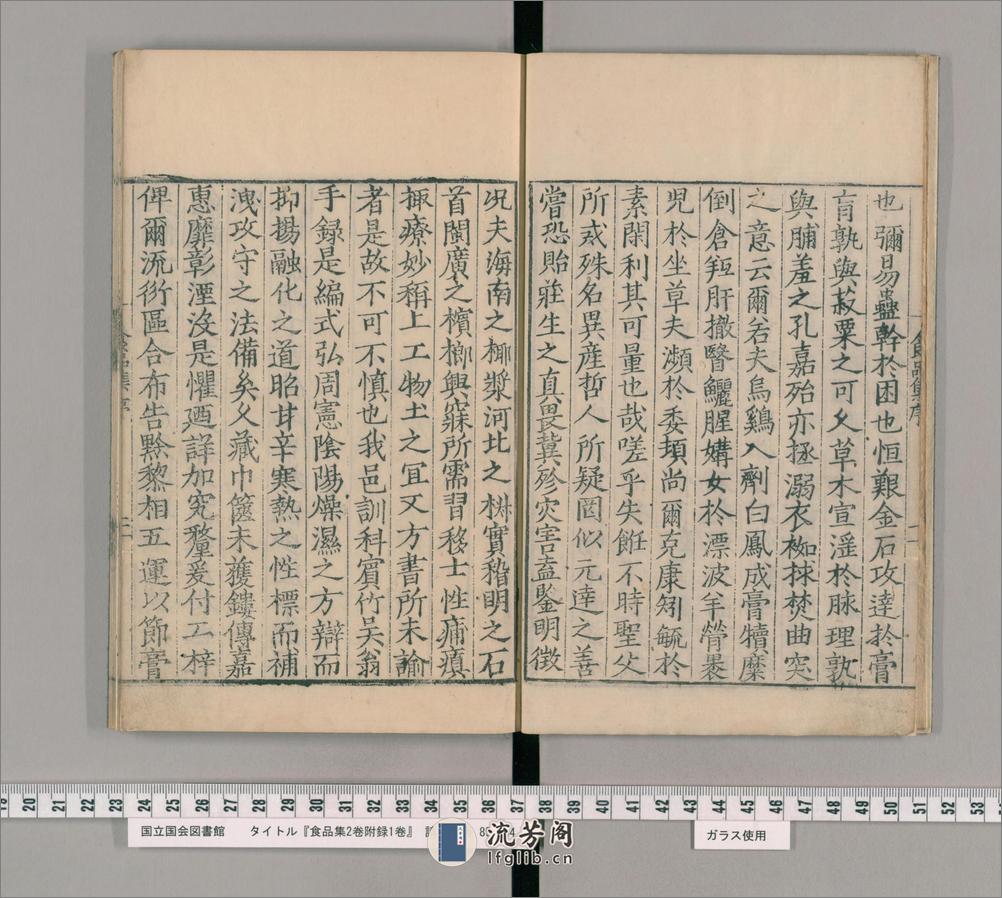 也彌易蠱幹於困也恒艱金石攻達於膏
肓孰與菽粟之可父草木宣滛於脉理孰
與脯羞之孔嘉殆亦拯溺衣袽捄焚曲突
之意云爾若夫烏鷄入劑白鳳成膏犢糜
倒倉羖肝撤瞖鱺腥媾女於漂波羊膋褁
兕於坐草夫瀕於委頓尚爾克康矧毓於
素閑利其可量也哉嗟乎失飪不時聖父
所戒殊名異産哲人所疑罔似元達之善
嘗恐貽莊生之真畏冀殄灾害盍鑒明徴
况夫海南之椰漿河北之椕實稽明之石
首閩廣之檳榔興寐所需習移士性痛瘨
掫療妙稱上工物土之宜又方書所未諭
者是故不可不慎也我邑訓科賓竹吴翁
手録是編式弘周憲陰陽燥濕之方辯而
抑揚融化之道昭甘辛寒熱之性標而補
洩攻守之法備矣父藏巾篋未獲鏤傳嘉
惠靡彰湮没是懼廼詳加究釐爰付工梓
俾爾流衍區合布告黔黎相五運以節膏
食品集序
一
食品集序
二
国立国会図書館 タイトル『食品集2卷附録1卷』
ガラス使用
流芳阁
lfglib.cn
19 20 21 22 23 24 25 26 27 28 29 30 31 32 33 34 35 36 37 38 39 40 41 42 43 44 45 46 47 48 49 50 51 52 53 54